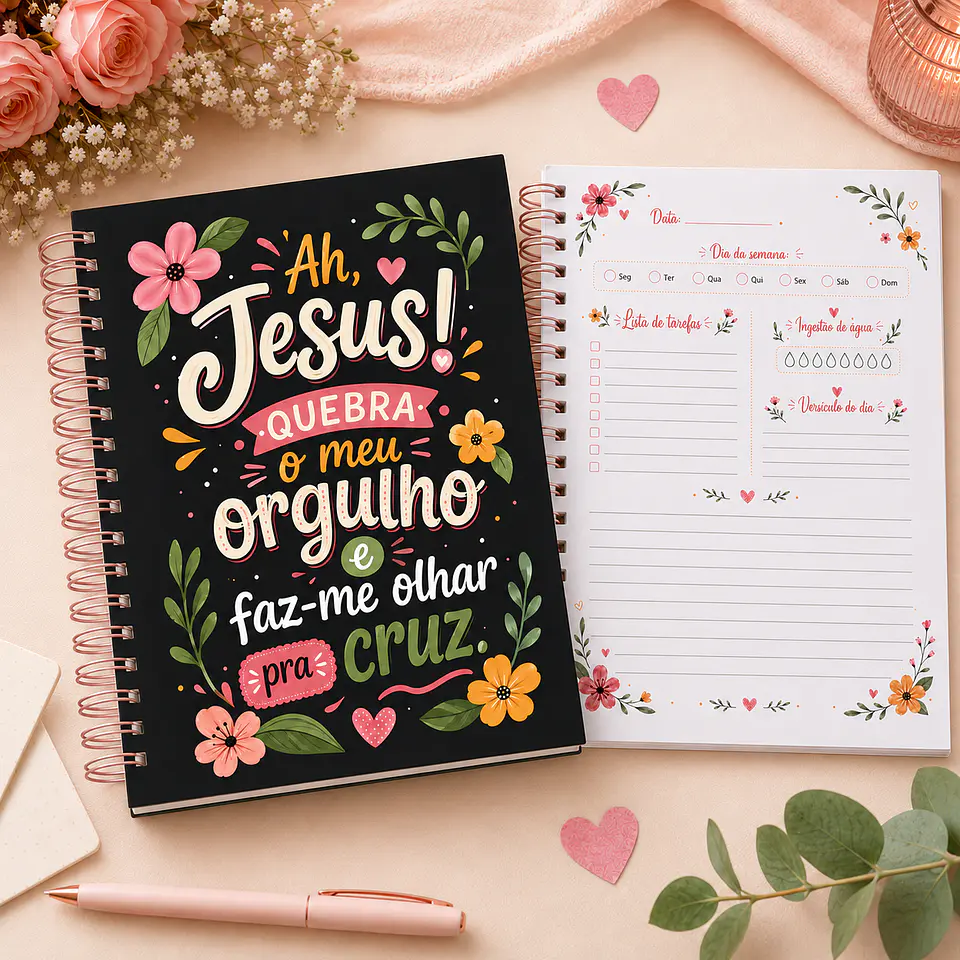 Ah,
Jesus!
QUEBRA
o meu
orgulho
e
faz-me olhar
pra cruz.
Data:
Dia da semana:
Seg Ter Qua Qui Sex Sáb Dom
Lista de tarefas
Ingestão de água
Versículo do dia